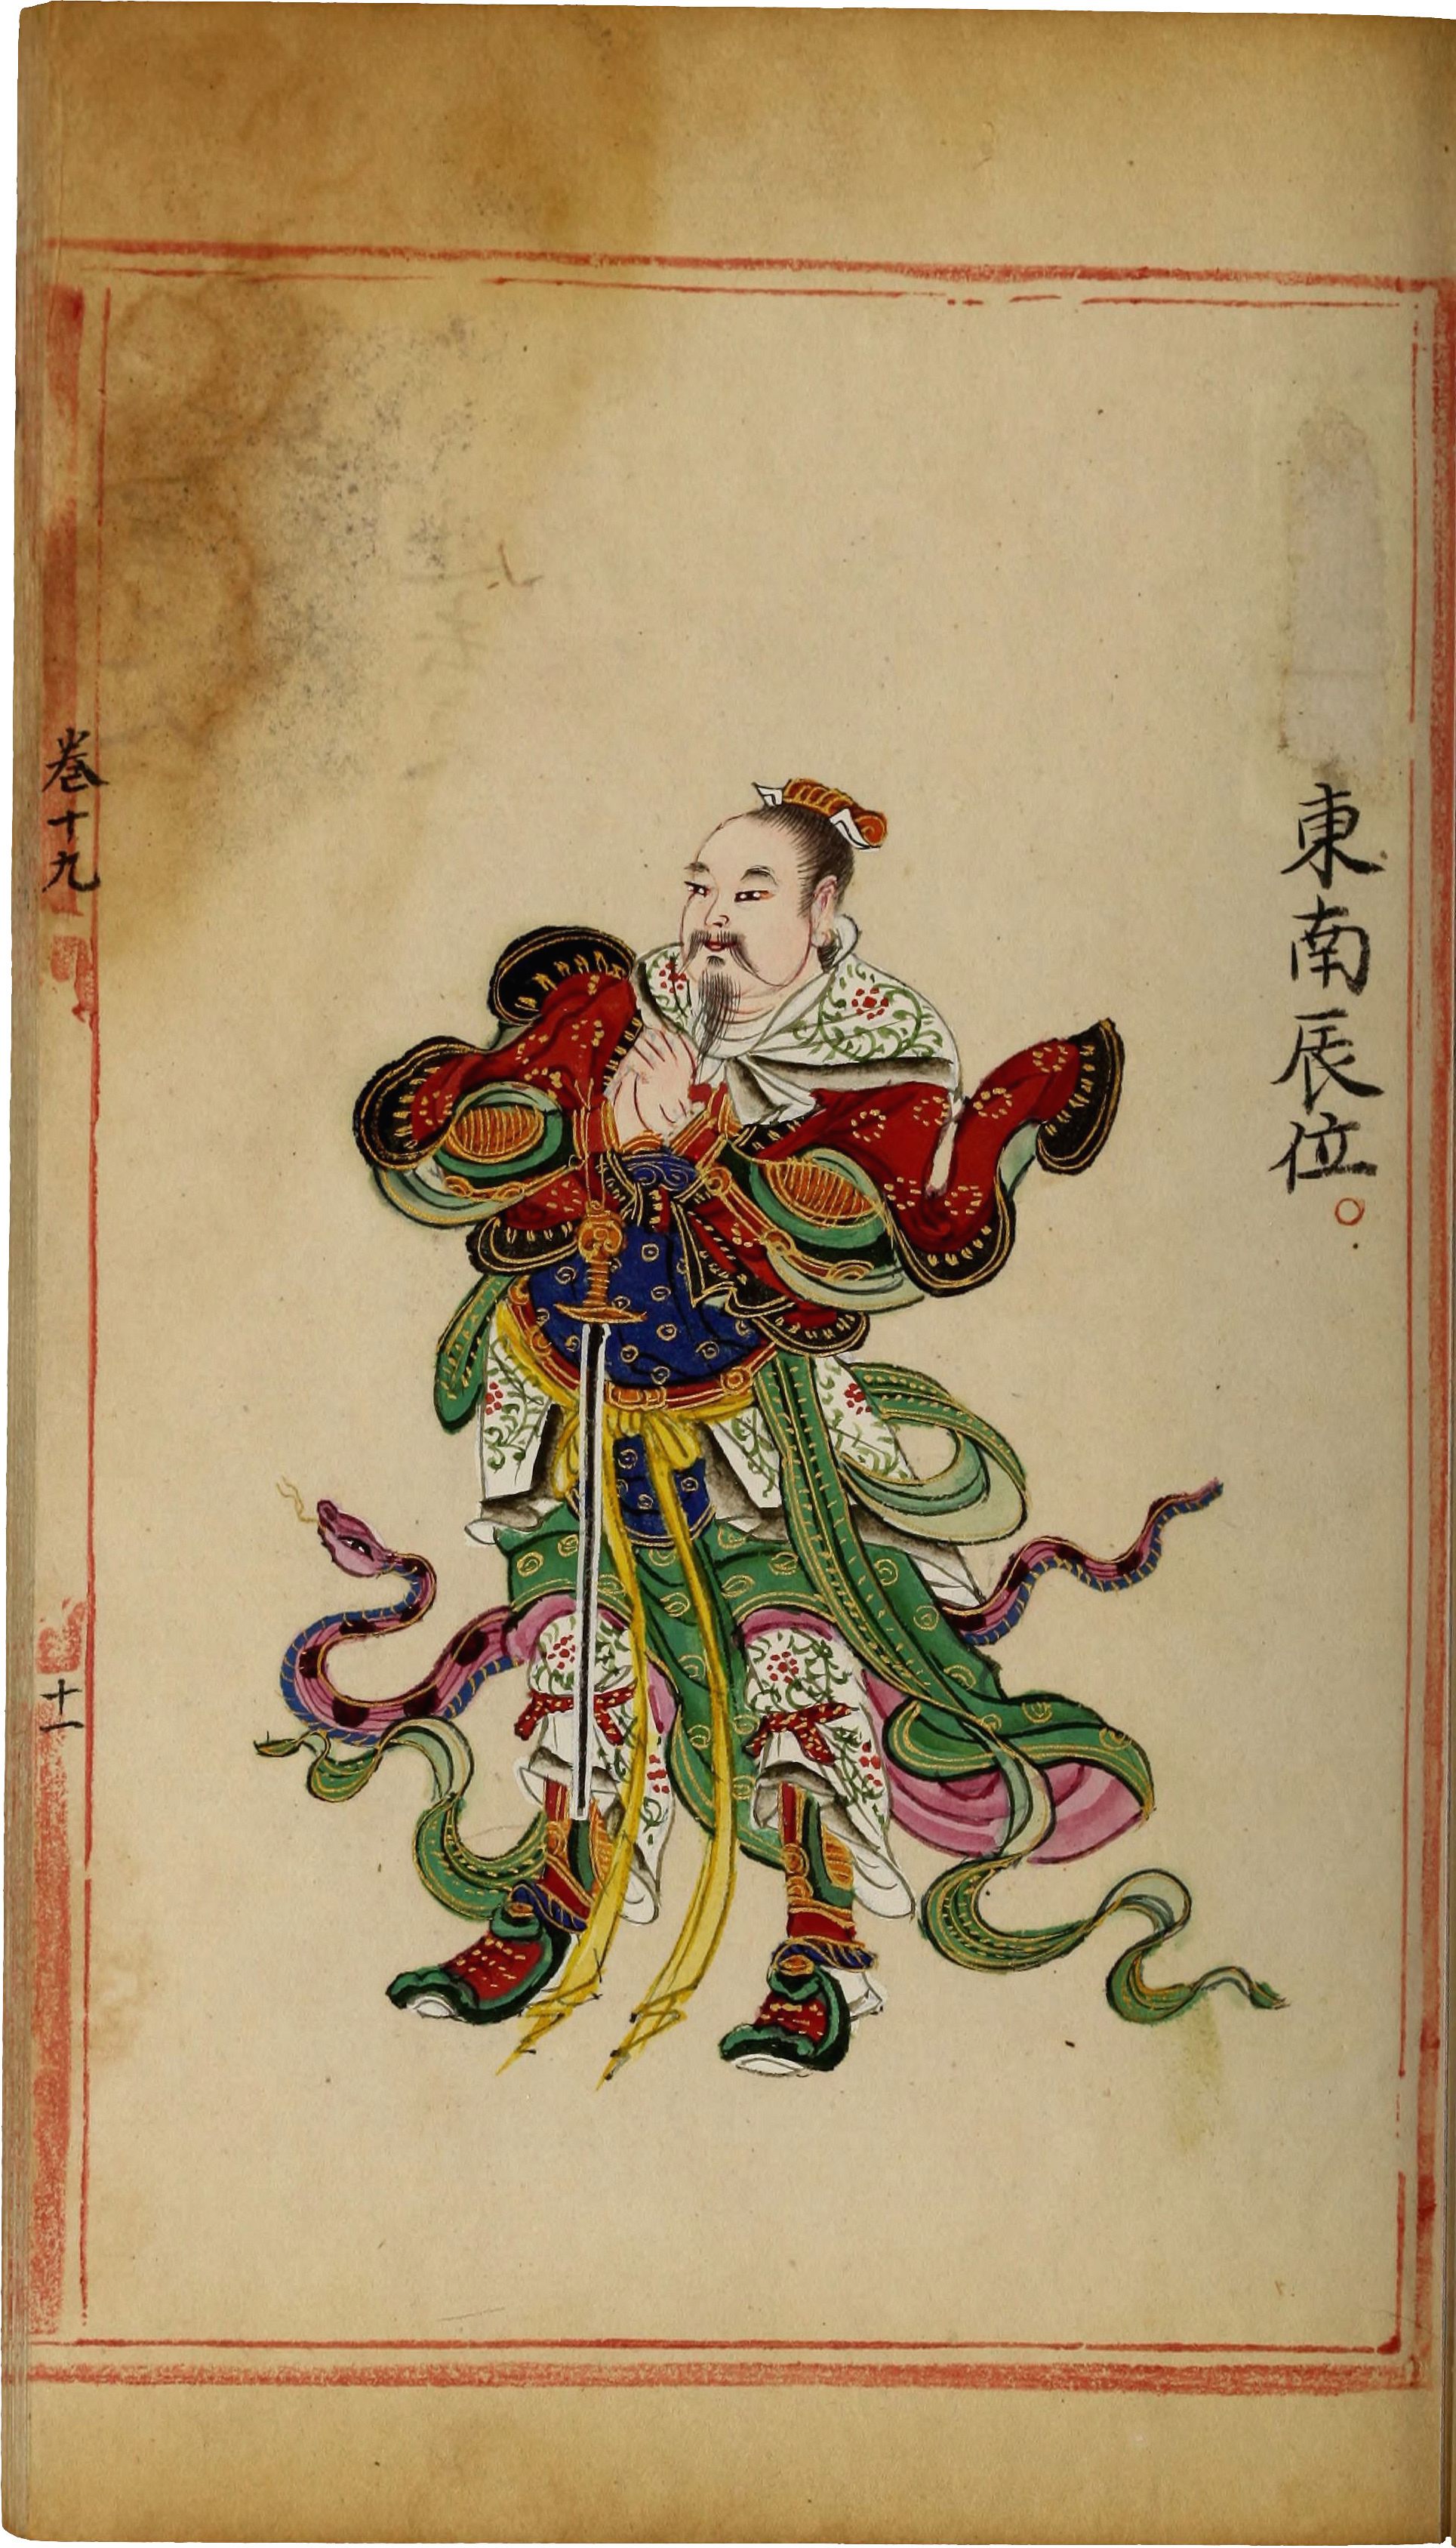 東南辰位
卷十九
十一